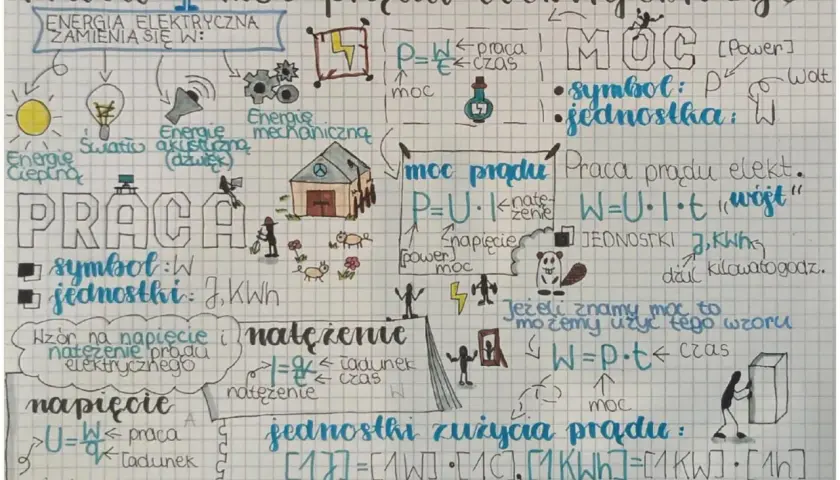 prądu
ENERGIA ELEKTRYCZNA
ZAMIENIA SIĘ W:
Energię
Cieplną
Światło
Energię
akustyczną
(dźwięk)
Energię
mechaniczną
P=W/t
praca
czas
moc
MOC [Power]
symbol: P
jednostka: W
Wat
PRACA
symbol: W
jednostki: J, KWh
moc prądu
P=U·I
natę-
żenie
napięcie
[power]
moc
Praca prądu elekt.
W=U·I·t „wójt"
JEDNOSTKI J, KWh
dżul kilowatogodz.
Jeżeli znamy moc to
możemy użyć tego wzoru
W=P·t
czas
moc
Wzór na napięcie i
natężenie prądu
elektrycznego
natężenie
I=q/t
ładunek
czas
natężenie
napięcie
U=W/q
praca
ładunek
jednostki zużycia prądu:
[1J]=[1W]·[1C], [1KWh]=[1KW]·[1h]